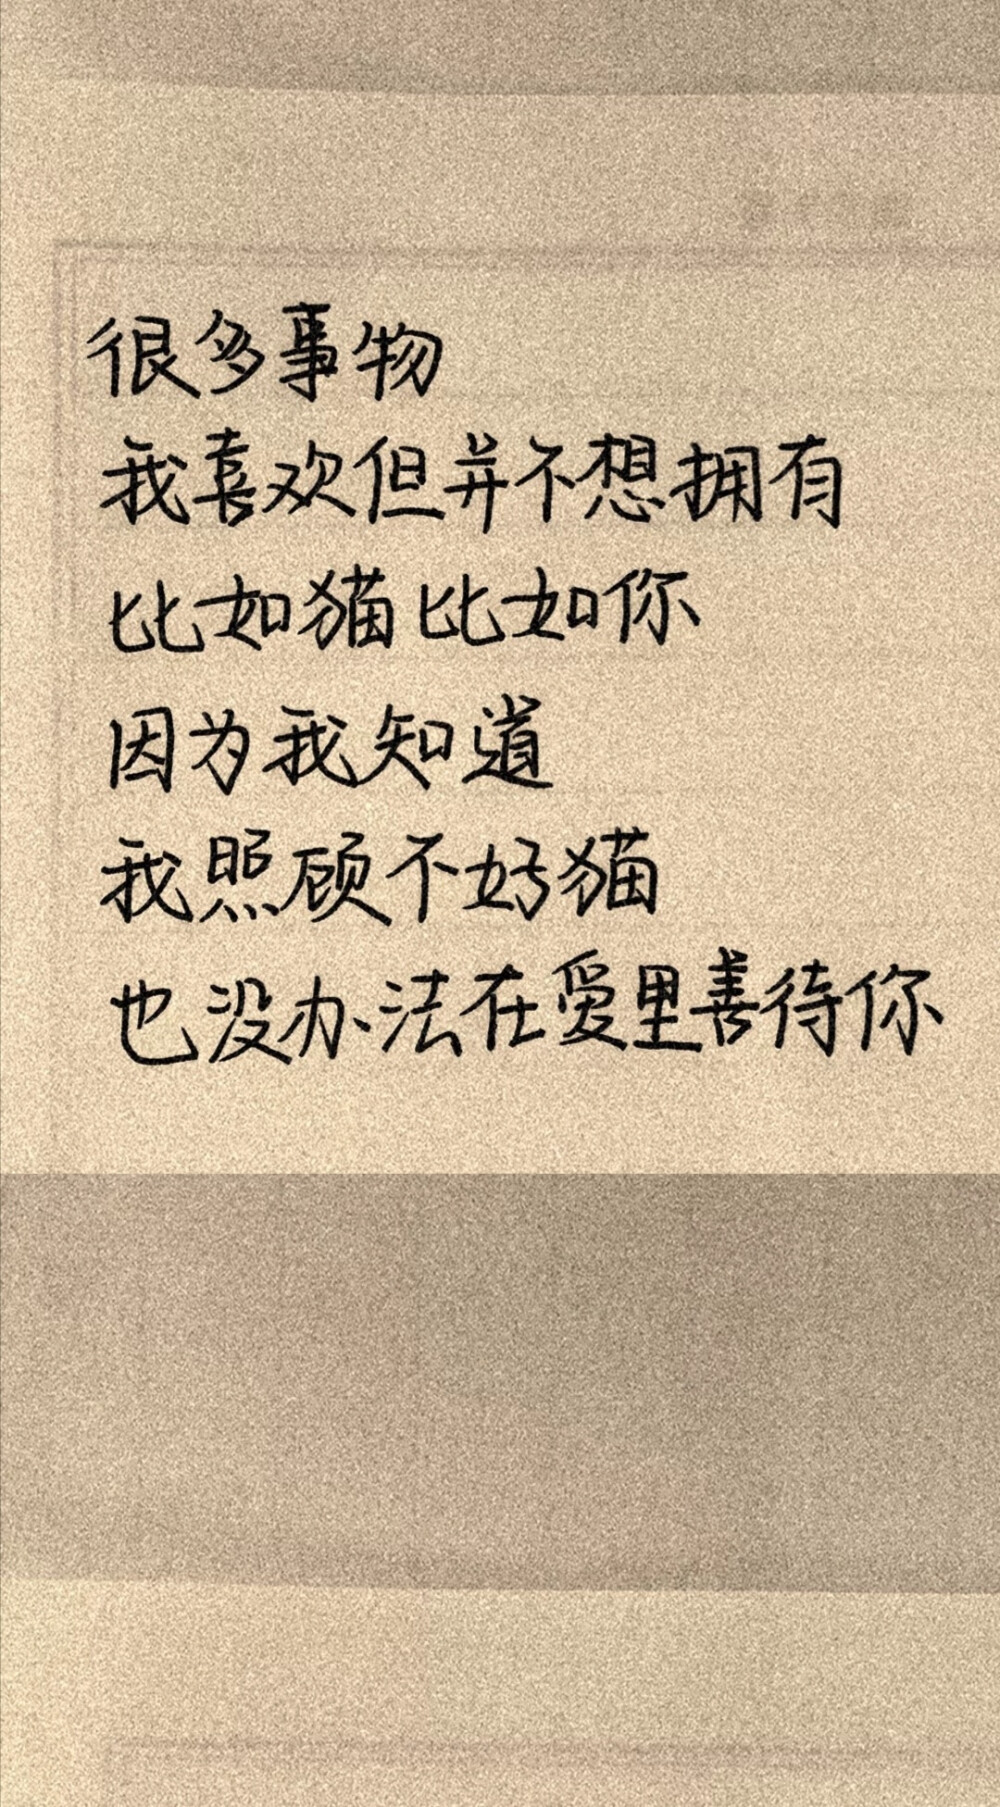 很多事物
我喜欢但并不想拥有
比如猫 比如你
因为我知道
我照顾不好猫
也没办法在爱里善待你